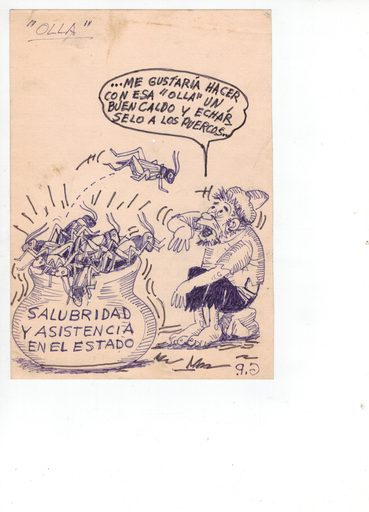 "OLLA"
...ME GUSTARIA HACER
CON ESA "OLLA" UN
BUEN CALDO Y ECHAR
SELO A LOS PUERCOS..
SALUBRIDAD
Y ASISTENCIA
EN EL ESTADO